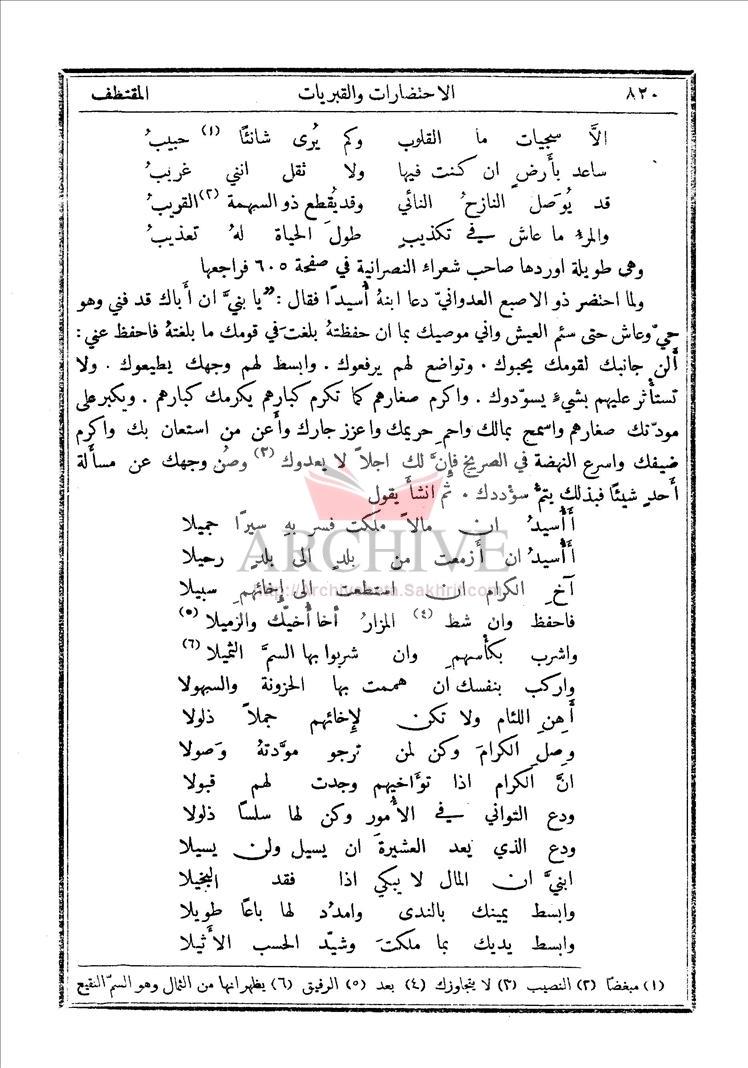 ٨٢٠ الاحتضارات والقبريات المقتطف
الاَّ سجيات ما القلوب وكم يُرى شانئًا (١) حبيبُ
ساعد بأَرضٍ ان كنت فيها ولا تقل انني غريبُ
قد يُوَصل النازحُ النائي وقد يُقطع ذو السهمة (٢) القريبُ
والمرءُ ما عاش في تكذيبٍ طولَ الحياة لهُ تعذيبُ
وهي طويلة اوردها صاحب شعراء النصرانية في صفحة ٦٠٥ فراجعها
ولما احتضر ذو الاصبع العدوانيّ دعا ابنهُ أُسيدًا فقال : «يا بنيَّ ان أَباك قد فني وهو
حيّ وعاش حتى سئم العيش واني موصيك بما ان حفظتهُ بلغتَ في قومك ما بلغتهُ فاحفظ عني :
أَلن جانبك لقومك يحبوك . وتواضع لهم يرفعوك . وابسط لهم وجهك يطيعوك . ولا
تستأْثر عليهم بشيءٍ يسوّدوك . واكرم صغارهم كما تكرم كبارهم يكرمك كبارهم . ويكبر على
مودّتك صغارهم واسمح بمالك واحمِ حريمك واعزز جارك وأَعن من استعان بك واكرم
ضيفك واسرع النهضة في الصريخ فإِنَّ لك اجلاً لا يعدوك (٣) وصُن وجهك عن مسأَلة
أَحدٍ شيئًا فبذلك يتمُّ سؤددك . ثم انشأَ يقول
أَأُسيدُ ان مالاً ملكت فسر بهِ سيرًا جميلا
أَأُسيدُ ان أَزمعت من بلدٍ الى بلدٍ رحيلا
آخِ الكرام ان استطعت الى إِخائهمِ سبيلا
فاحفظ وان شط (٤) المزارُ أخا أُخيّك والزميلا (٥)
واشرب بكأْسهمِ وان شربوا بها السمَّ الثميلا (٦)
واركب بنفسك ان هممت بها الحزونة والسهولا
أَهن اللئام ولا تكن لإِخائهم جملاً ذلولا
وصِلِ الكرامَ وكن لمن ترجو موَّدتهُ وَصولا
انَّ الكرام اذا توَٴاخيهم وجدت لهم قبولا
ودع التواني في الأُمور وكن لها سلسًا ذلولا
ودع الذي يعد العشيرةَ ان يسيل ولن يسيلا
ابنيَّ ان المال لا يبكي اذا فقد البخيلا
وابسط يمينك بالندى وامدُد لها باعًا طويلا
وابسط يديك بما ملكتَ وشيّد الحسب الأَثيلا
(١) مبغضًا (٢) النصيب (٣) لا يتجاوزك (٤) بعد (٥) الرفيق (٦) يظهر انها من الثمال وهو السمّ النقيع
ARCHIVE
http://Archivebeta.Sakhrit.com